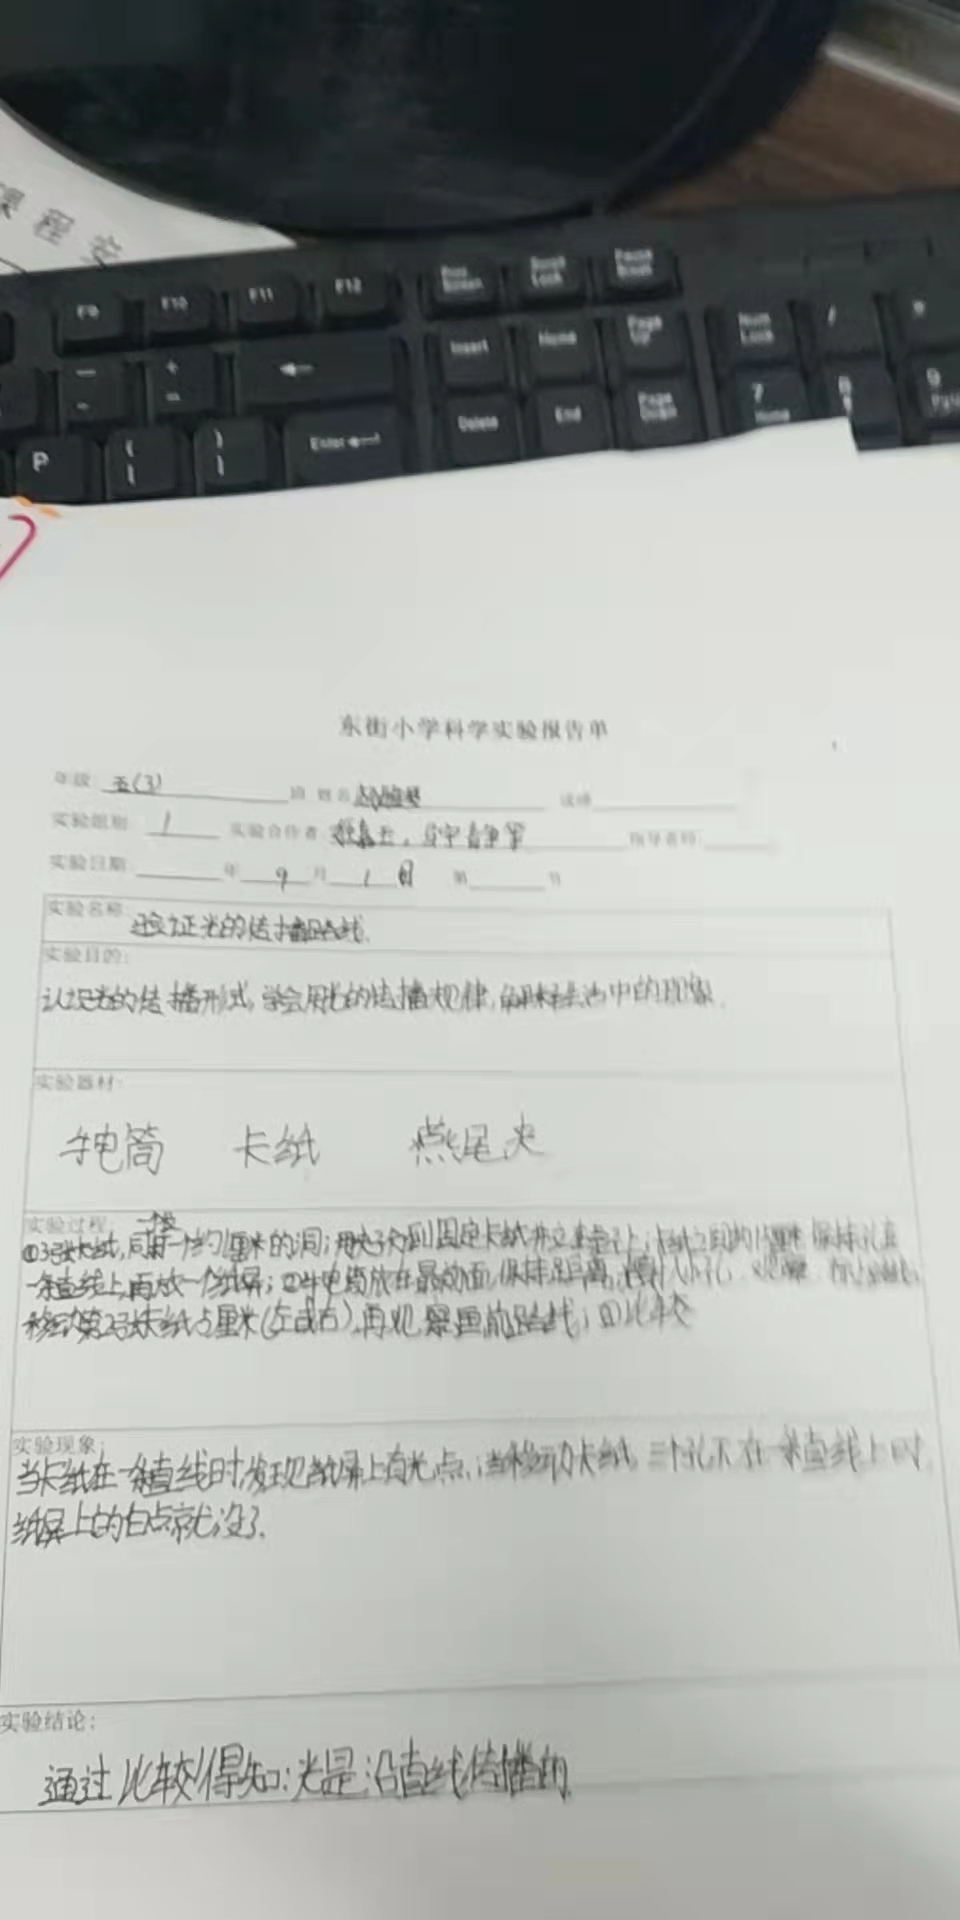 课程安
F9 F10 F11 F12 Print Screen Scroll Lock Pause Break
Insert Home Page Up Num Lock /
Delete End Page Down 7 Home 8 9
P Enter
东街小学科学实验报告单
年级 五(3) 班 姓名 成绩
实验组别 1 实验合作者 指导老师
实验日期 年 9 月 1 日 第 节
实验名称: 验证光的传播路线.
实验目的:
认识光的传播形式,学会用光的传播规律,解释生活中的现象.
实验器材:
手电筒 卡纸 燕尾夹
实验过程:
①3张卡纸,同一个约1厘米的洞;用夹子分别固定卡纸并立在桌上;卡纸之间约15厘米 保持孔在
一条直线上,再放一个纸屏;②手电筒放在最前面,保持距离,小孔,观察
移动第2张卡纸5厘米(左或右),再观察光的路线;④比较
实验现象:
当卡纸在一条直线时,发现纸屏上有光点,当移动卡纸,三个孔不在一条直线上时,
纸屏上的白点就没了.
实验结论:
通过比较得知:光是沿直线传播的.